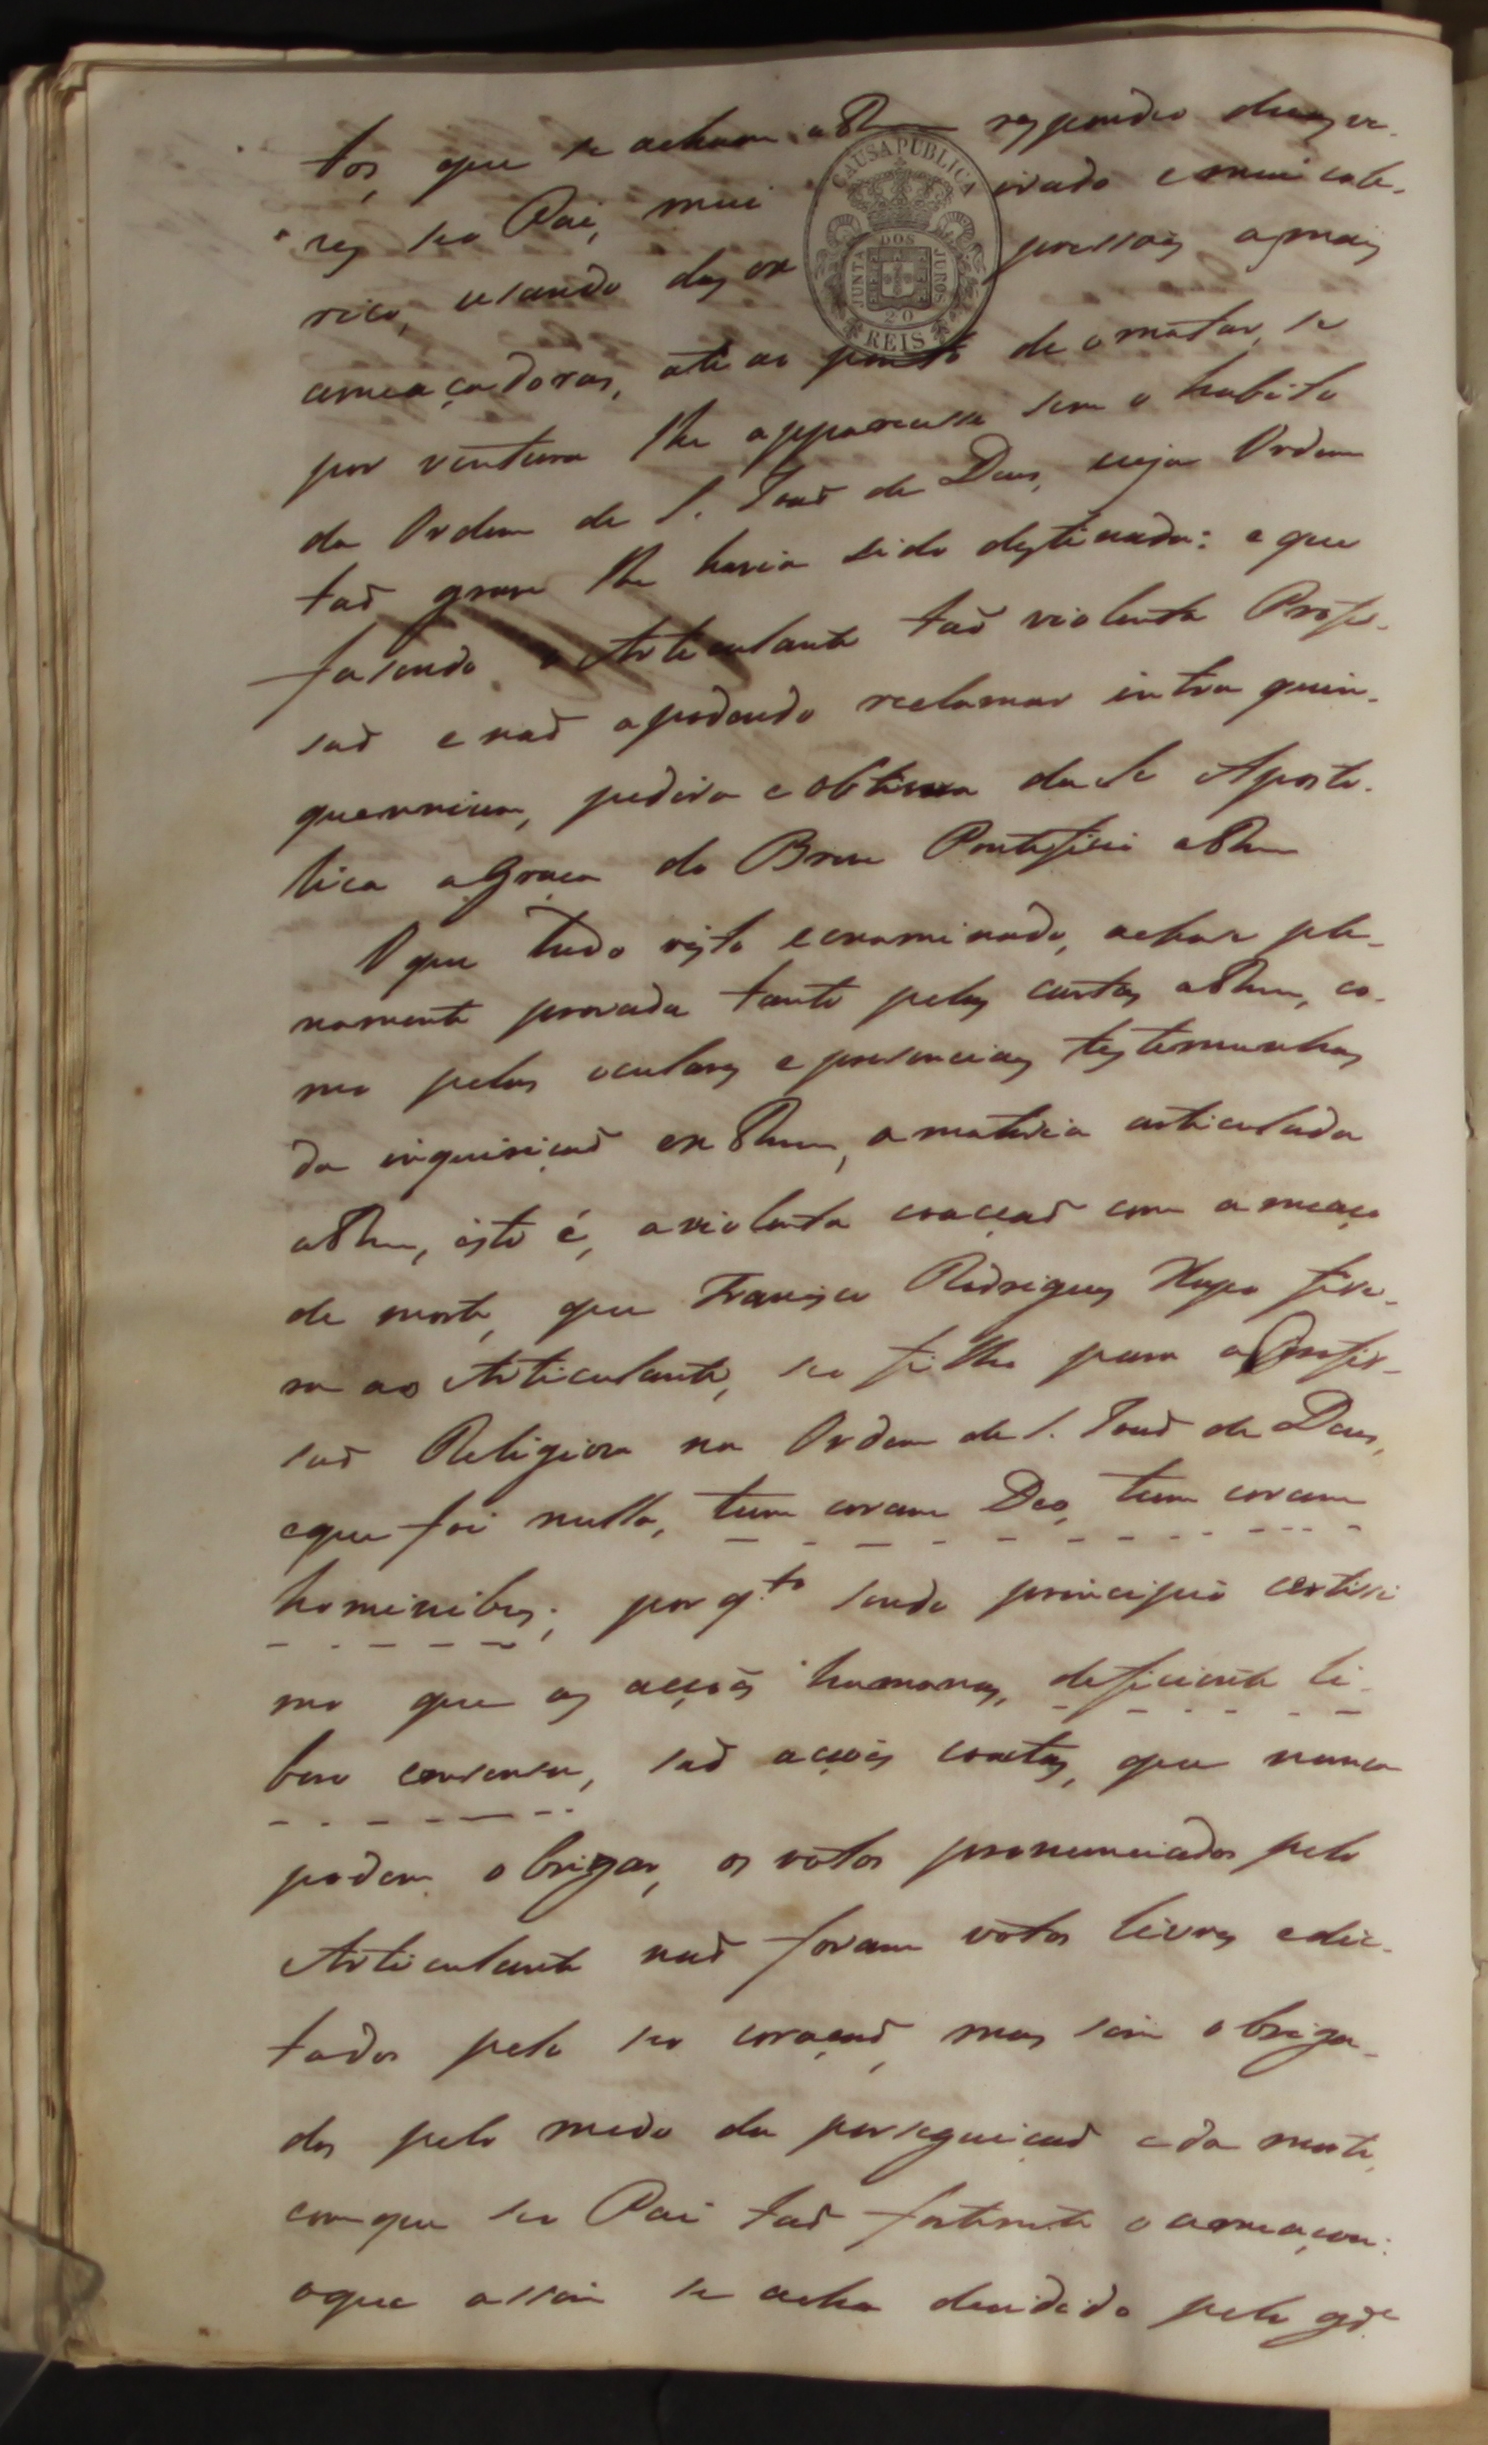 tos, que se acham a fl respondeo diversas ve-
res seo Pai, mui irado e mui cole-
rico, usando das ex pressoẽs as mais
ameaçadoras, até ao ponto de o matar, se
por ventura lhe apparecesse sem o habito
da Ordem de S. Joaõ de Deus, cuja Ordem
taõ grave lhe havia sido destinada: e que
fasendo o Articulante taõ violenta Profis-
saõ e naõ a podendo reclamar intra quin-
quennium, pedira e obtivera da Se Aposto-
lica a Graça do Breve Pontificio a fl
O que tudo visto e examinado, acha-se ple-
namente provada tanto pelas cartas a fl, co-
mo pelas oculares e presenciaes testemunhas
da inquiriçaõ ex fl, a materia articulada
a fl, isto é, a violenta coacçaõ com ameaço
de morte, que Francisco Rodrigues fise-
ra ao Articulante, seo filho para a Profis-
saõ Religiosa na Ordem de S. Joaõ de Deus,
e que foi nulla, tum coram Deo, tum coram
hominibus; por q.to sendo principio certissi
mo que as acçoẽs humanas, deficiente li-
bero consensu, saõ acçoẽs coactas, que nunca
podem obrigar, os votos pronunciados pelo
Articulante naõ foram votos livres e dic-
tados pelo seo coraçaõ, mas sim obriga-
dos pelo medo da perseguiçaõ e da morte,
com que seo Pai taõ fortemente o ameaçou:
o que assim se acha decidido pelo g.de
CAUSA PUBLICA
JUNTA DOS JUROS
20
REIS